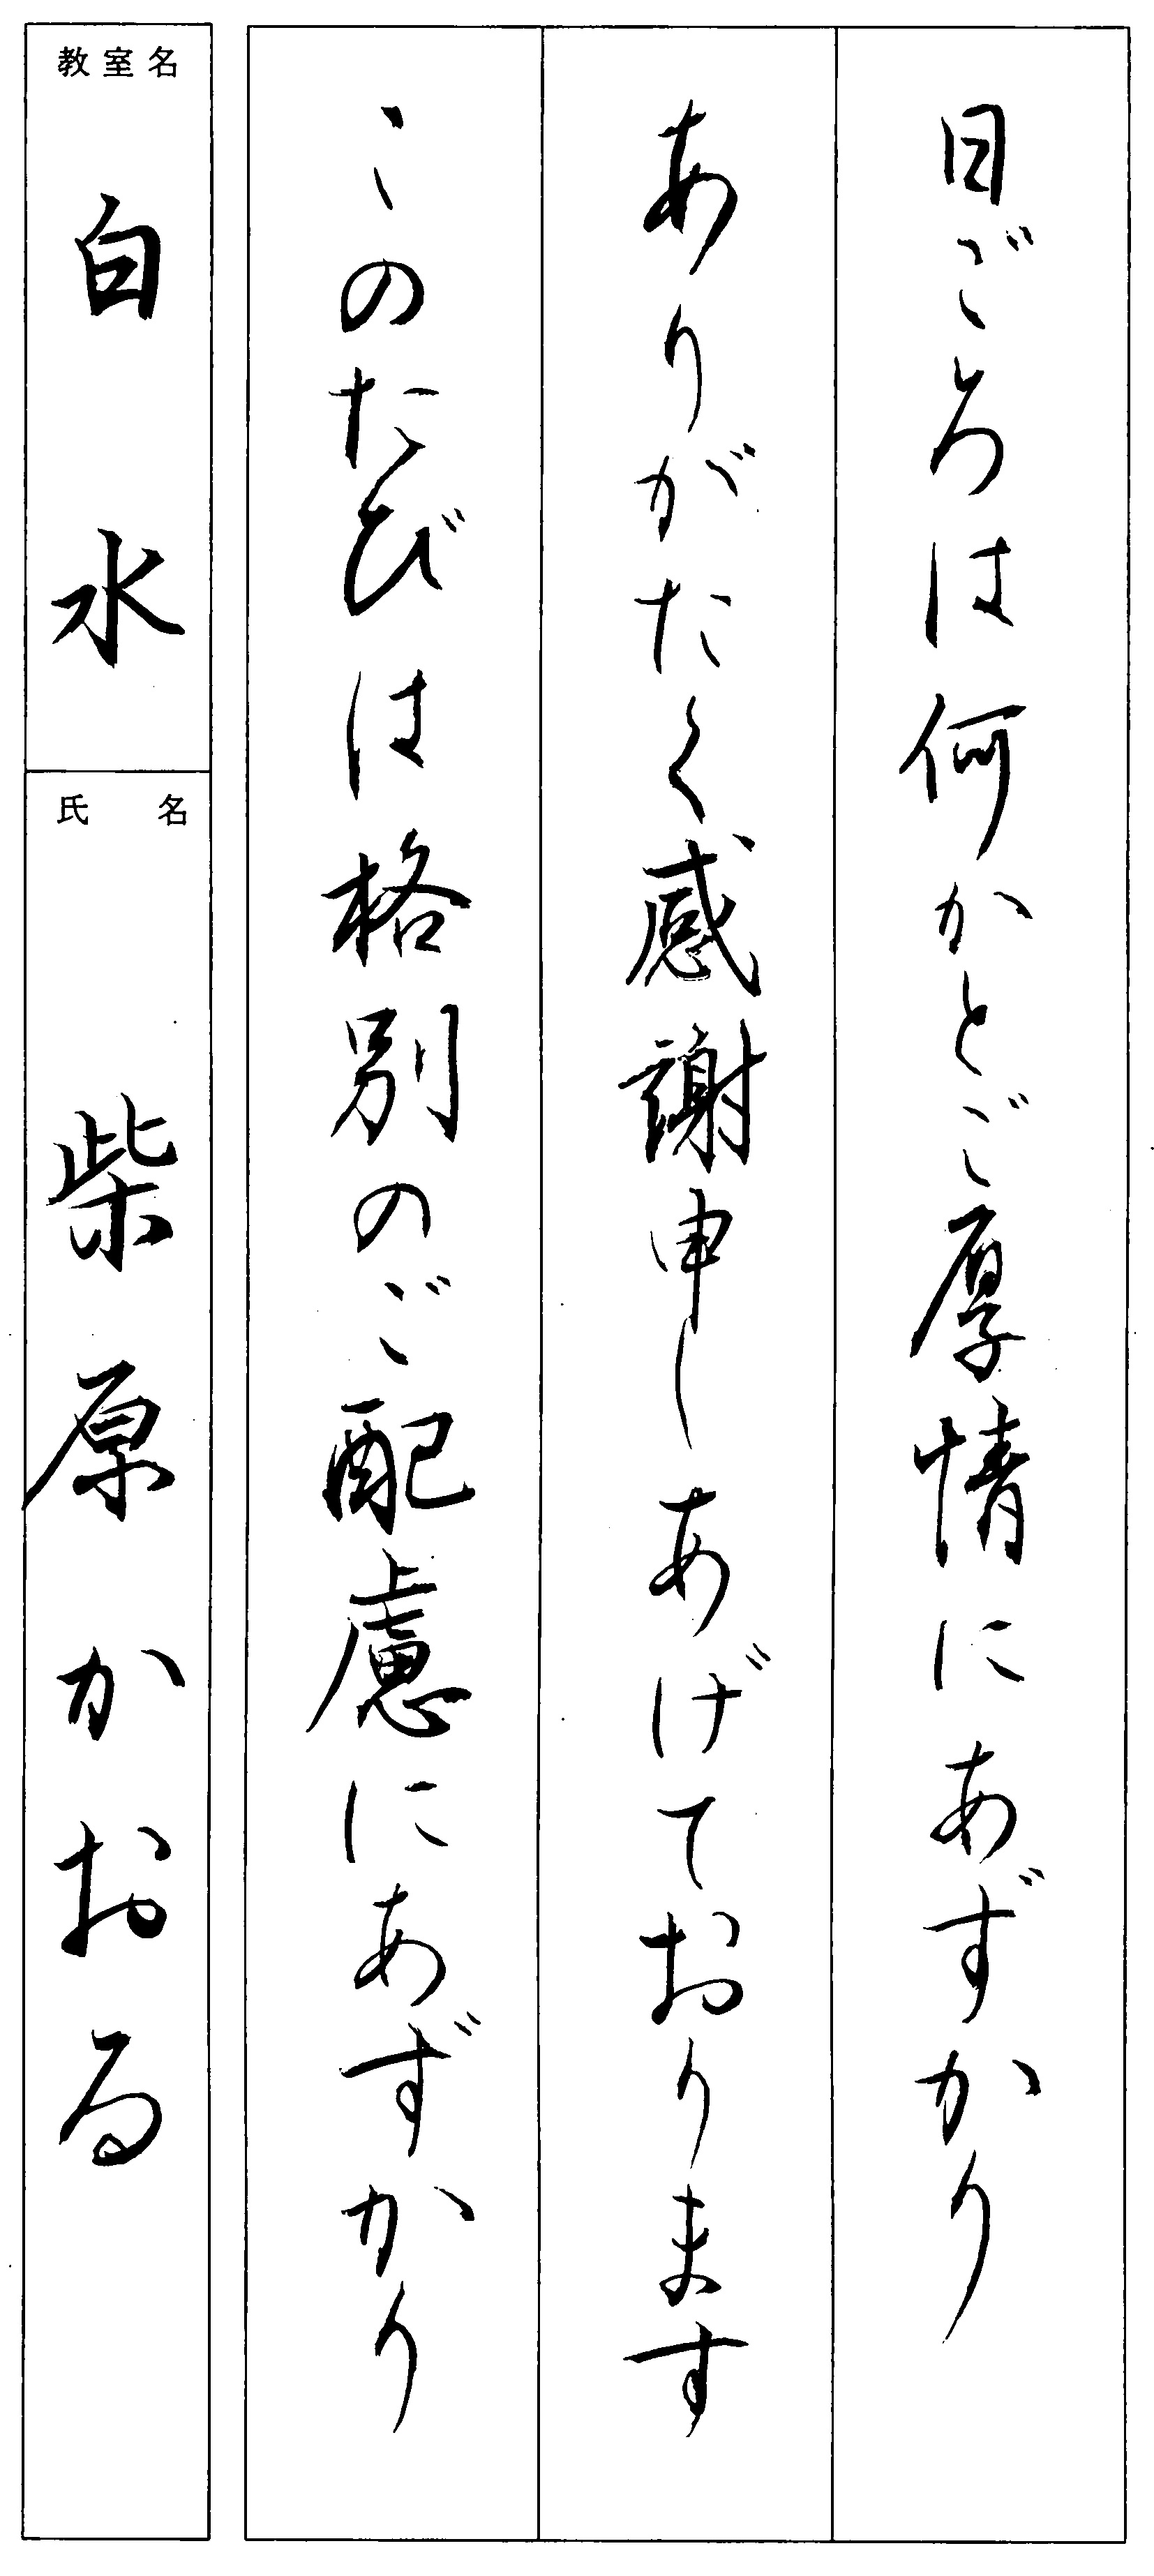 日ごろは何かとご厚情にあずかり
ありがたく感謝申しあげております
このたびは格別のご配慮にあずかり
教室名
白水
氏名
柴原かおる